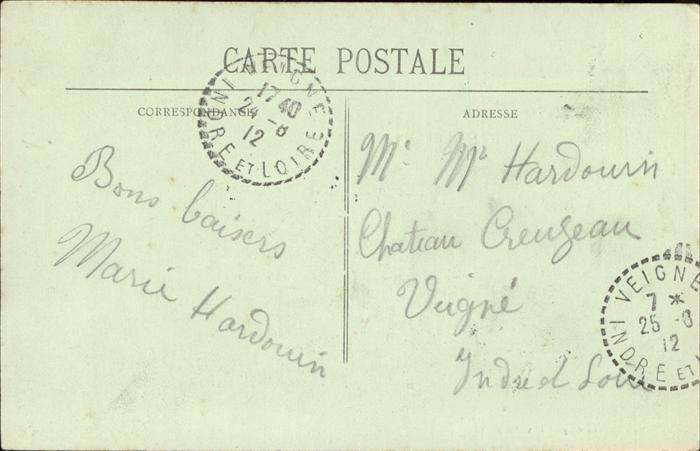 CARTE POSTALE
CORRESPONDANCE
VEIGNE
17 40
24 -8
12
INDRE ET LOIRE
Bons baisers
Marie Hardouin
ADRESSE
Hardouin
Chateau Creuzeau
Veigné
Indre et Loire
VEIGNE
7 *
25 -8
12
INDRE ET